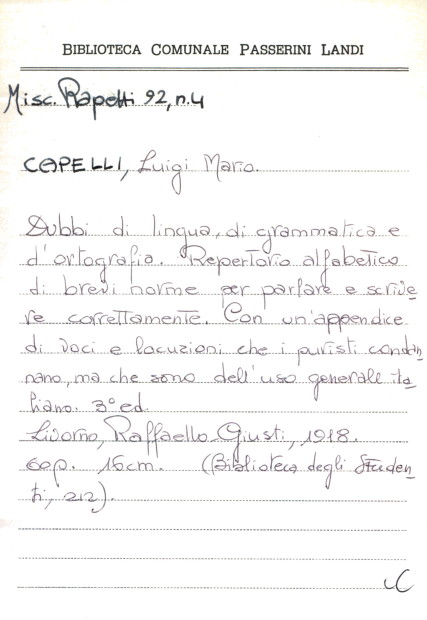 BIBLIOTECA COMUNALE PASSERINI LANDI
Misc. Rapetti 92, n. 4
CAPELLI, Luigi Mario.
Dubbi di lingua, di grammatica e
d'ortografia. Repertorio alfabetico
di brevi norme per parlare e scrive
re correttamente. Con un'appendice
di voci e locuzioni che i puristi condan
nano, ma che sono dell'uso generale ita
liano. 3° ed.
Livorno, Raffaello Giusti, 1918.
60p. 16cm. (Biblioteca degli Studen
ti, 212).